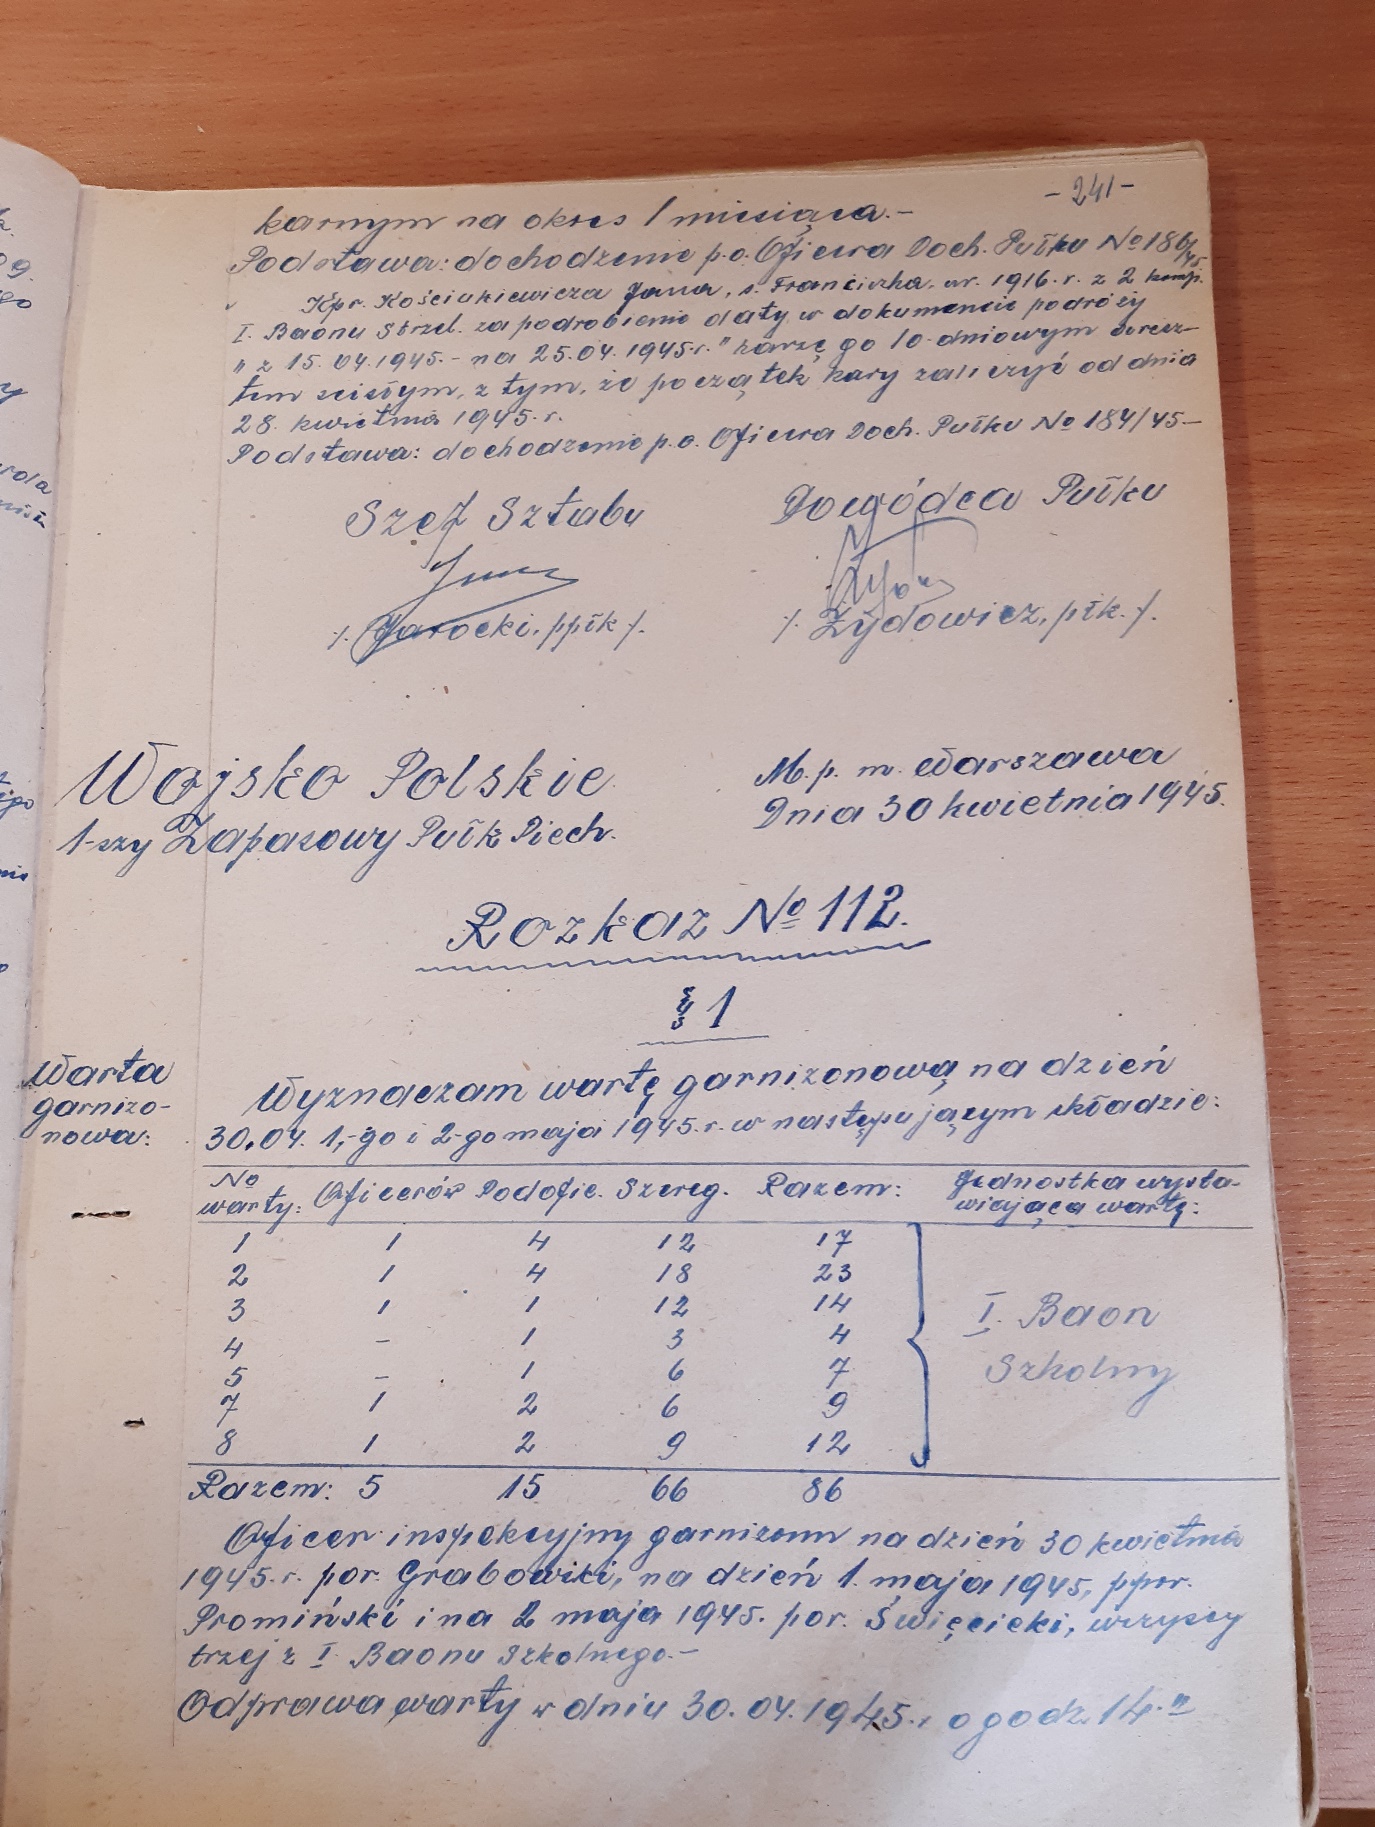 - 241 -
karnym na okres 1 miesiąca.-
Podstawa: dochodzenie p.o. Oficera Doch. Pułku No 186/45
Kpr. Kościukiewicza Jana, s. Franciszka, ur. 1916.r. z 2 komp.
I. Baonu Strzel. za podrobienie daty w dokumencie podróży
„z 15.04.1945.- na 25.04.1945.r." karzę go 10-dniowym aresz-
tem scisłym, z tym, że początek kary zaliczyć od dnia
28. kwietnia 1945.r.
Podstawa: dochodzenie p.o. Oficera Doch. Pułku No 184/45-
Szef Sztabu Dowódca Pułku
/. Jarocki, ppłk /. /. Żydowicz, płk. /.
Wojsko Polskie M.p. m. Warszawa
1-szy Zapasowy Pułk Piech. Dnia 30 kwietnia 1945.
Rozkaz No 112.
§ 1
Warta
garnizo-
nowa:
Wyznaczam wartę garnizonową na dzień
30.04. 1,-go i 2-go maja 1945.r. w następującym składzie:
No warty: Oficerów Podofic. Szereg. Razem: Jednostka wysta-
wiająca wartę:
1 1 4 12 17
2 1 4 18 23
3 1 1 12 14
4 - 1 3 4
5 - 1 6 7
7 1 2 6 9
8 1 2 9 12
I. Baon
Szkolny
Razem: 5 15 66 86
Oficer inspekcyjny garnizonu na dzień 30 kwietnia
1945.r. por. Grabowski, na dzień 1. maja 1945, ppor.
Promiński i na 2 maja 1945. por. Święcicki, wszyscy
trzej z I. Baonu Szkolnego.-
Odprawa warty w dniu 30.04.1945., o godz. 14.